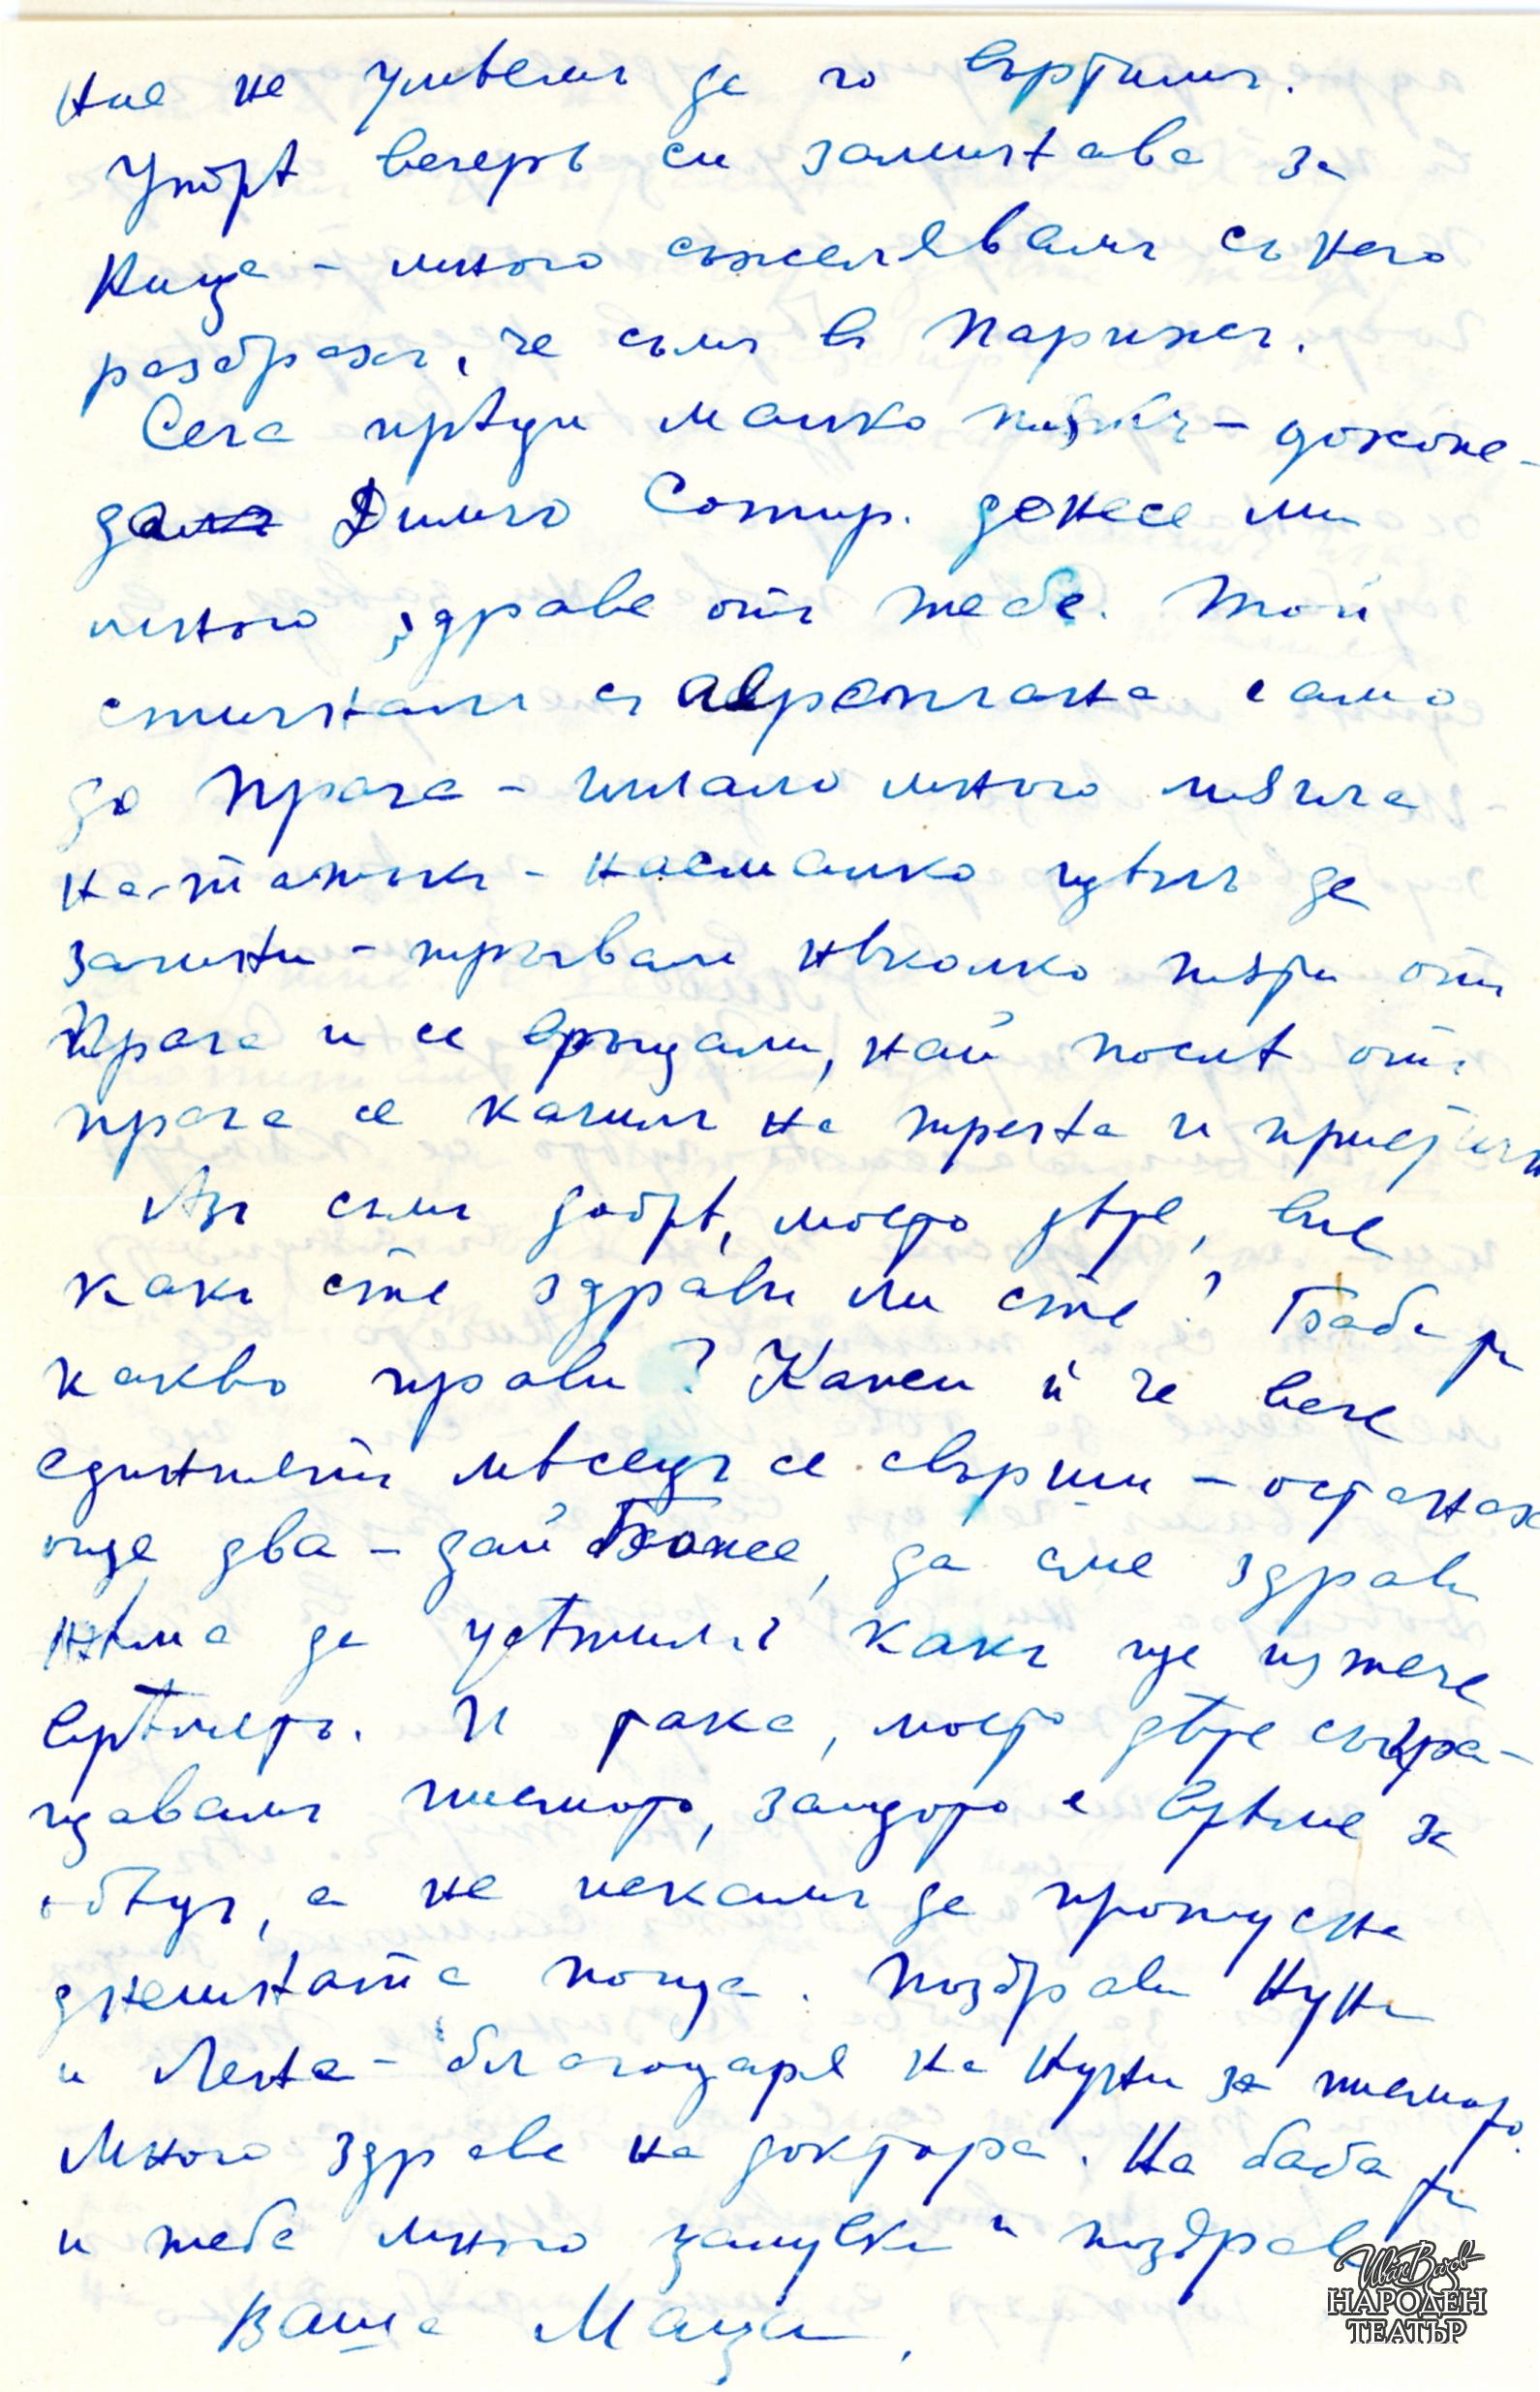 ние не умѣемъ да го въртимъ.
Утрѣ вечерь си заминава за
Ница - много съжелявамъ съ него
разбрахъ, че съмъ въ Парижъ.
Сега прѣди малко - дохожде-
 Димчо Сотир. донесе ми
много здраве отъ тебе. Той
стигналъ съ аероплана само
до Прага - имало много мъгла
на-тамъкъ - насмалко щѣлъ да
загине - тръгвали нѣколко пъти отъ
Прага и се връщали, най послѣ отъ
прага се качилъ на трена и пристигн
Азъ съмъ добрѣ, моето дѣте, вие
какъ сте здрави ли сте? Баба ти
какво прави? Кажи ѝ че вече
единиятъ мѣсецъ се свърши - останаха
още два - дай Боже, да сме здрави
нѣма да усѣтимъ какъ ще изтече
врѣмето. И така, моето дѣте съкра-
щавамъ писмото, защото е врѣме за
обѣдъ, а не искамъ да пропусна
днешната поща. Поздрави Нуни
и Лена - благодаря на Нуни за писмото.
Много здраве на доктора. На баба ти
и тебе много цалувки и поздрави
Ваша Маца.
Иван Вазов
НАРОДЕН
ТЕАТЪР